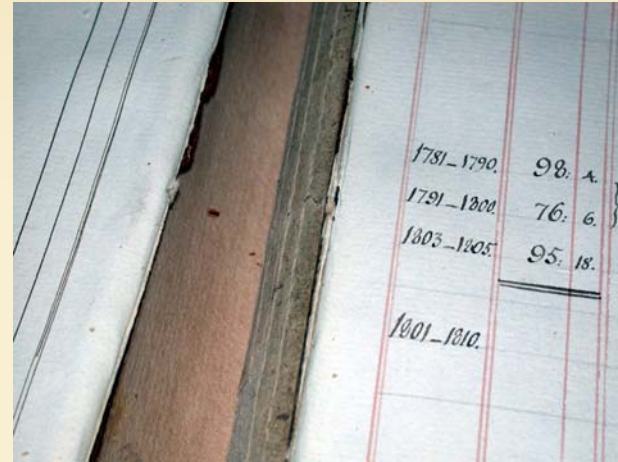 1781–1790. 98: 4.
1791–1800. 76: 6. }
1803–1805. 95: 18.
1801–1810.